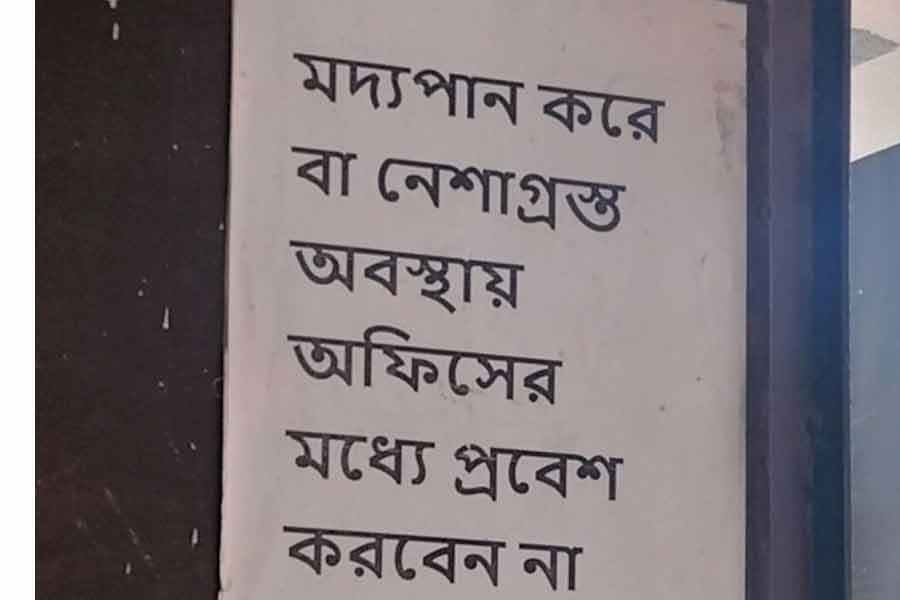 মদ্যপান করে
বা নেশাগ্রস্ত
অবস্থায়
অফিসের
মধ্যে প্রবেশ
করবেন না